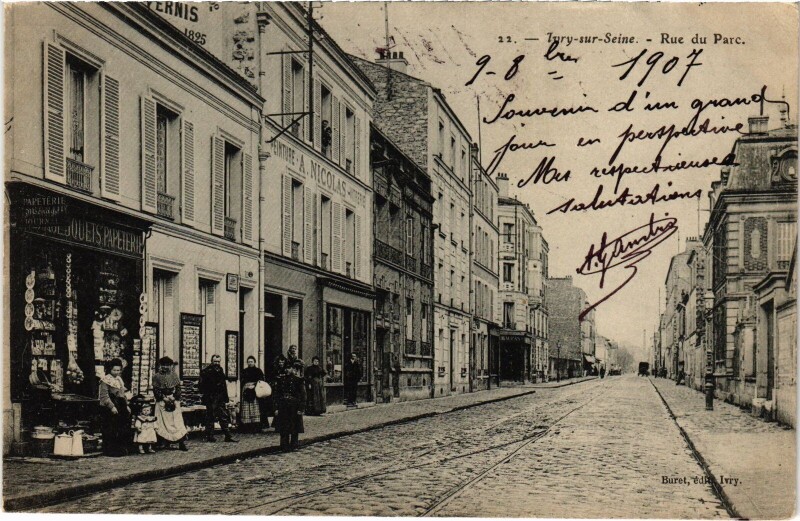 VERNIS
1825
22. — Ivry-sur-Seine. - Rue du Parc.
9-8bre 1907
Souvenir d'un grand
jour en perspective
Mes respectueuses
salutations
PEINTURE A. NICOLAS
PAPETERIE
JOUETS PAPETERIE
Buret, édit. Ivry.